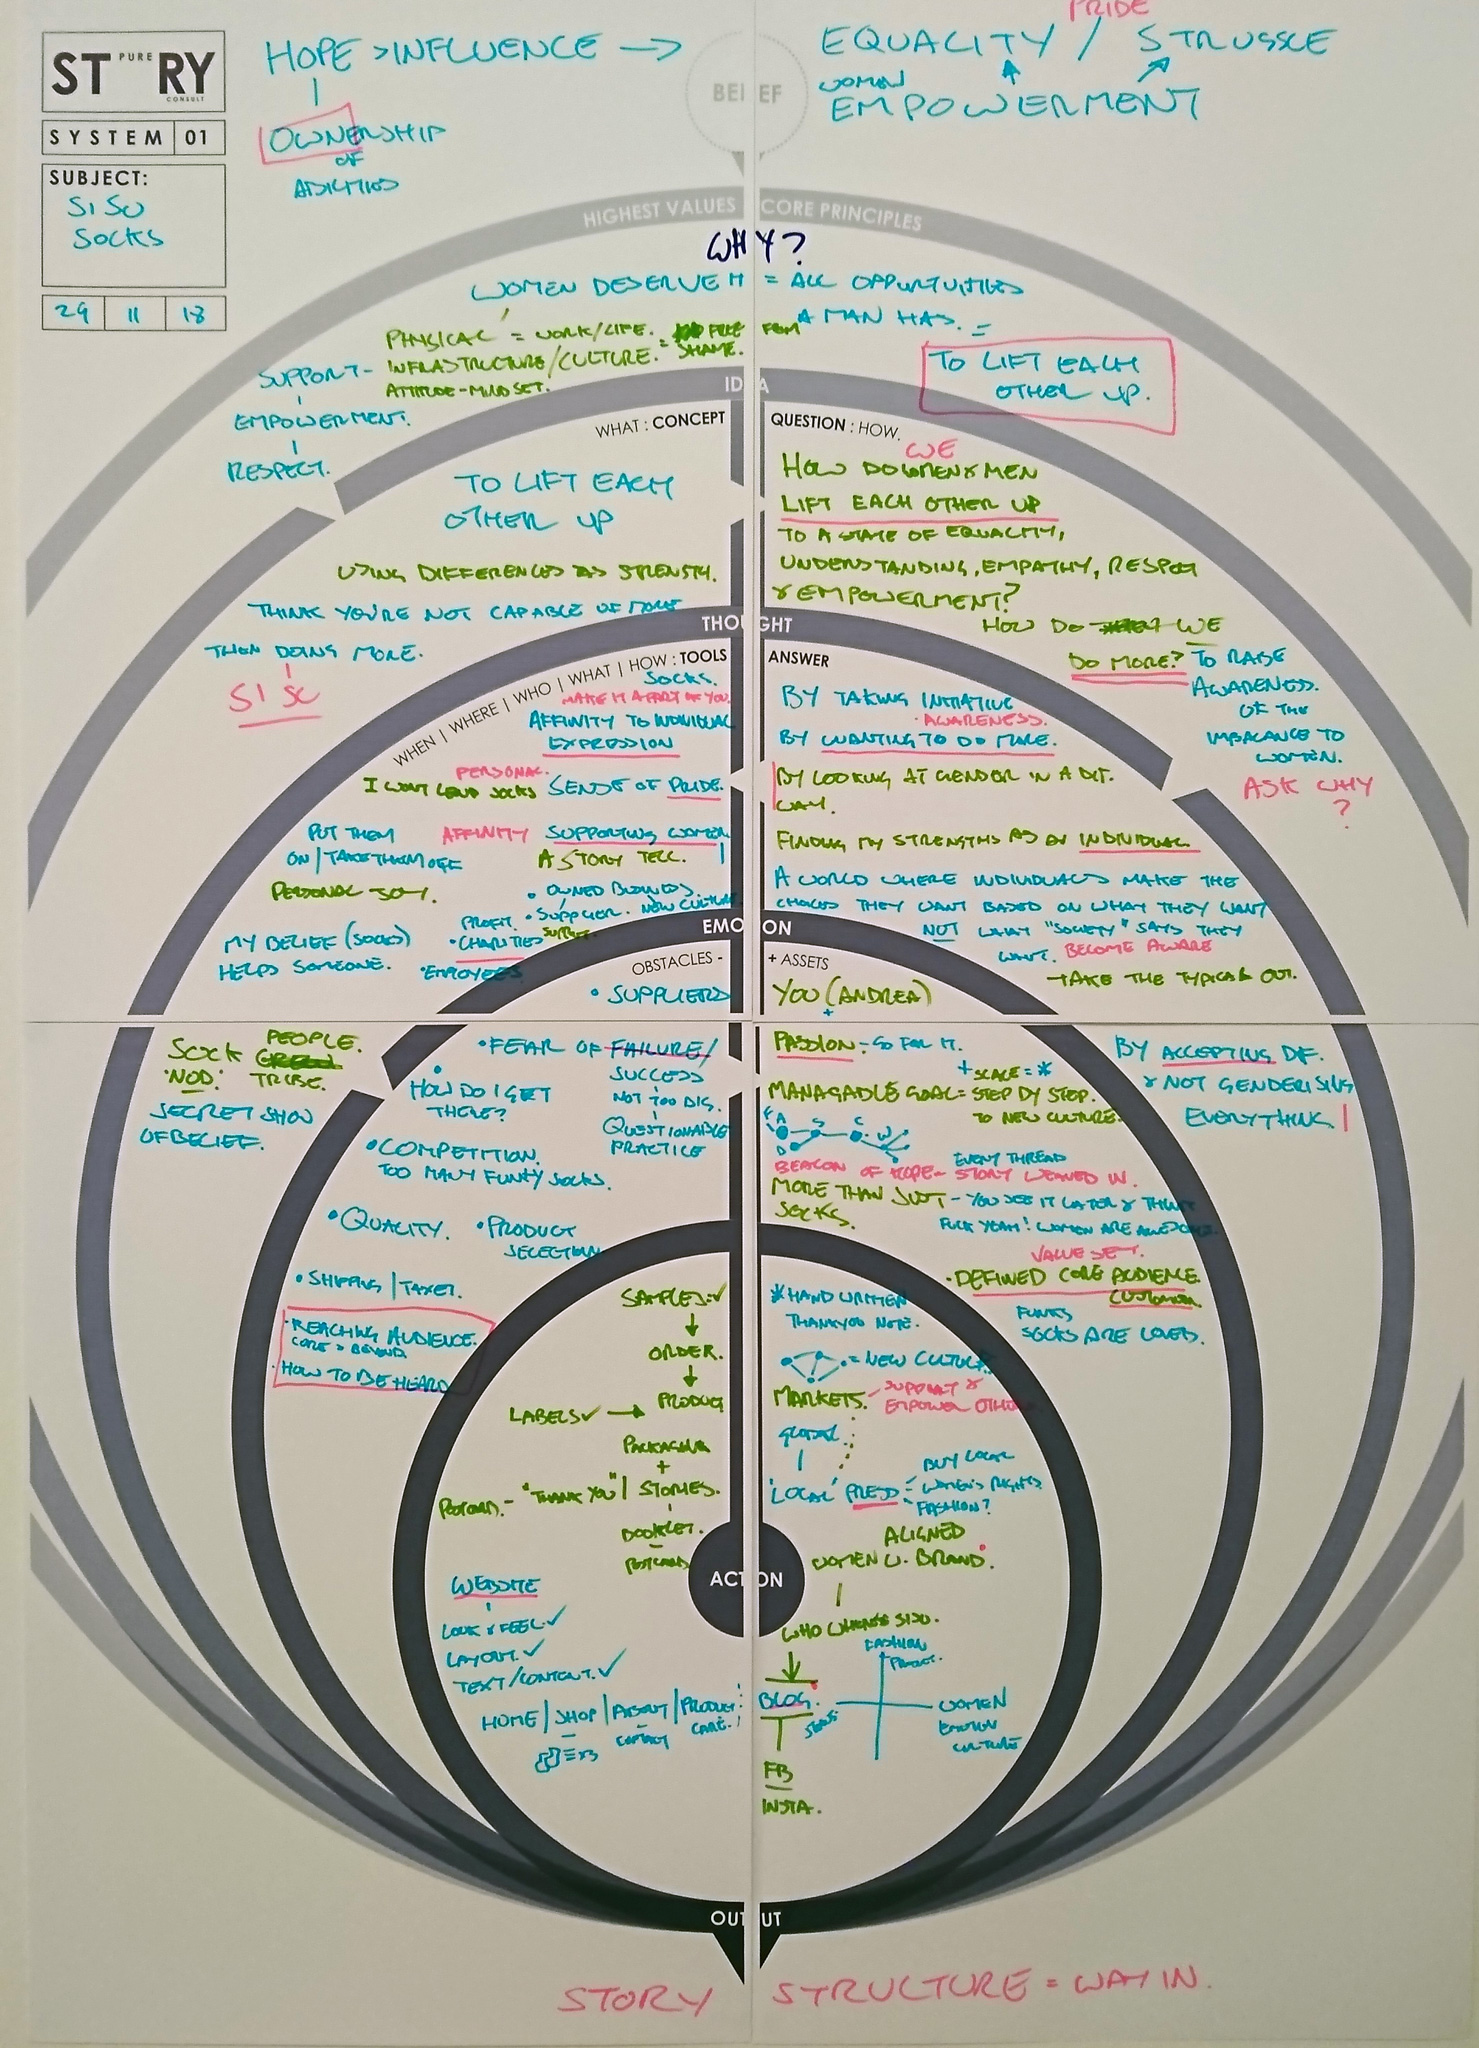 ST PURE RY
CONSULT
SYSTEM 01
SUBJECT:
SISU
SOCKS
29 11 18
HOPE > INFLUENCE →
OWNERSHIP
OF
BELIEF
PRIDE
EQUALITY / STRUGGLE
WOMEN
EMPOWERMENT
HIGHEST VALUES CORE PRINCIPLES
WHY?
WOMEN DESERVE IT = ALL OPPORTUNITIES
A MAN HAS. =
PHYSICAL = WORK/LIFE. = FREE FROM
INFRASTRUCTURE/CULTURE. SHAME.
ATTITUDE-MINDSET.
SUPPORT -
EMPOWERMENT.
RESPECT.
TO LIFT EACH
OTHER UP.
IDEA
WHAT : CONCEPT
TO LIFT EACH
OTHER UP
USING DIFFERENCES AS STRENGTH.
THINK YOU'RE NOT CAPABLE OF MORE
THEN DOING MORE.
SISU
QUESTION : HOW.
WE
HOW DO WOMEN & MEN
LIFT EACH OTHER UP
TO A STATE OF EQUALITY,
UNDERSTANDING, EMPATHY, RESPECT
& EMPOWERMENT?
HOW DO WE
DO MORE? TO RAISE
AWARENESS.
OF THE
IMBALANCE TO
WOMEN.
ASK WHY
?
THOUGHT
WHEN | WHERE | WHO | WHAT | HOW : TOOLS
SOCKS.
MAKE IT A PART OF YOU.
AFFINITY TO INDIVIDUAL
EXPRESSION
PERSONAL.
I WONT LEND SOCKS SENSE OF PRIDE.
PUT THEM
ON/TAKE THEM OFF
AFFINITY SUPPORTING WOMEN
A STORY TELL.
PERSONAL JOY.
• OWNED BUSINESS.
PROFIT. • SUPPLIER. NEW CULTURE
• CHARITIES
• EMPLOYEES
MY BELIEF (SOCKS)
HELPS SOMEONE.
ANSWER
BY TAKING INITIATIVE
• AWARENESS.
BY WANTING TO DO MORE.
BY LOOKING AT GENDER IN A DIF.
WAY.
FINDING MY STRENGTHS AS AN INDIVIDUAL
A WORLD WHERE INDIVIDUALS MAKE THE
CHOICES THEY WANT BASED ON WHAT THEY WANT
NOT WHAT "SOCIETY" SAYS THEY
WANT. BECOME AWARE
- TAKE THE TYPICAL OUT.
EMOTION
OBSTACLES -
• SUPPLIERS
SOCK PEOPLE.
'NOD.' TRIBE.
SECRET SHOW
OF BELIEF.
• FEAR OF FAILURE/
SUCCESS
NOT TOO BIG.
QUESTIONABLE
PRACTICE
• HOW DO I GET
THERE?
• COMPETITION.
TOO MANY FUNKY SOCKS.
• QUALITY. • PRODUCT
SELECTION
• SHIPPING | TAXES.
• REACHING AUDIENCE.
CORE > BEYOND.
• HOW TO BE HEARD
+ ASSETS
YOU (ANDREA)
+
PASSION - GO FOR IT.
+ SCALE = *
MANAGABLE GOAL = STEP BY STEP.
TO NEW CULTURE.
EVERY THREAD
BEACON OF HOPE - STORY WEAVED IN.
MORE THAN JUST - YOU SEE IT LATER & THINK
SOCKS. FUCK YEAH! WOMEN ARE AWESOME.
VALUE SET.
• DEFINED CORE AUDIENCE.
CUSTOMER
FUNKY
SOCKS ARE LOVED.
BY ACCEPTING DIF.
& NOT GENDERISING
EVERYTHING
SAMPLES. ✓
ORDER.
LABELS ✓ → PRODUCT
PACKAGING
+
POSTCARD. - "THANK YOU" | STORIES.
BOOKLET.
POSTCARD
WEBSITE
LOOK & FEEL ✓
LAYOUT. ✓
TEXT/CONTENT. ✓
HOME | SHOP | ABOUT | PRODUCT
CONTACT CARE.
* HAND WRITTEN
THANKYOU NOTE.
= NEW CULTURE.
MARKETS. - SUPPORT &
EMPOWER OTHERS
GLOBAL
'LOCAL' PRESS = BUY LOCAL
WOMEN'S RIGHTS
FASHION?
ALIGNED
WOMEN W. BRAND.
ACTION
FASHION
PRODUCT.
BLOG.
WOMEN
EMOTION
CULTURE
FB
INSTA.
OUTPUT
STORY STRUCTURE = WAY IN.